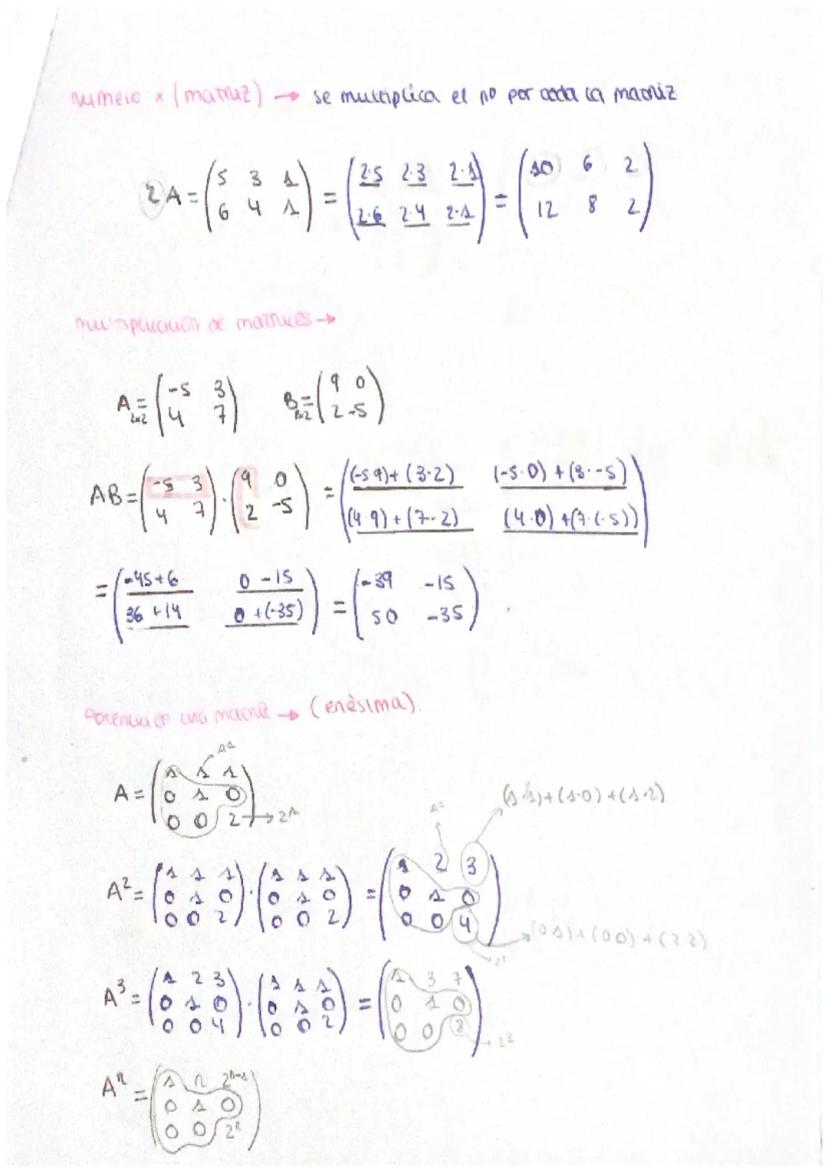 numero x (matriz) → se multiplica el nº por cada la matriz
2A = (5 3 1 / 6 4 1) = (2·5 2·3 2·1 / 2·6 2·4 2·1) = (10 6 2 / 12 8 2)
multiplicación de matrices →
A 2x2 = (-5 3 / 4 7) B 2x2 = (9 0 / 2 -5)
AB = (-5 3 / 4 7) · (9 0 / 2 -5) = ((-5·9)+(3·2) (-5·0)+(3·-5) / (4·9)+(7·2) (4·0)+(7·(-5)))
= (-45+6 0-15 / 36+14 0+(-35)) = (-39 -15 / 50 -35)
Potencia de una matriz → (enésima).
A = (1 1 1 / 0 1 0 / 0 0 2) → 2¹
(1·1)+(1·0)+(1·2)
A² = (1 1 1 / 0 1 0 / 0 0 2) · (1 1 1 / 0 1 0 / 0 0 2) = (1 2 3 / 0 1 0 / 0 0 4)
(0·1)+(0·0)+(2·2)
A³ = (1 2 3 / 0 1 0 / 0 0 4) · (1 1 1 / 0 1 0 / 0 0 2) = (1 3 7 / 0 1 0 / 0 0 8)
Aⁿ = (1 n 2ⁿ⁻¹ / 0 1 0 / 0 0 2ⁿ)